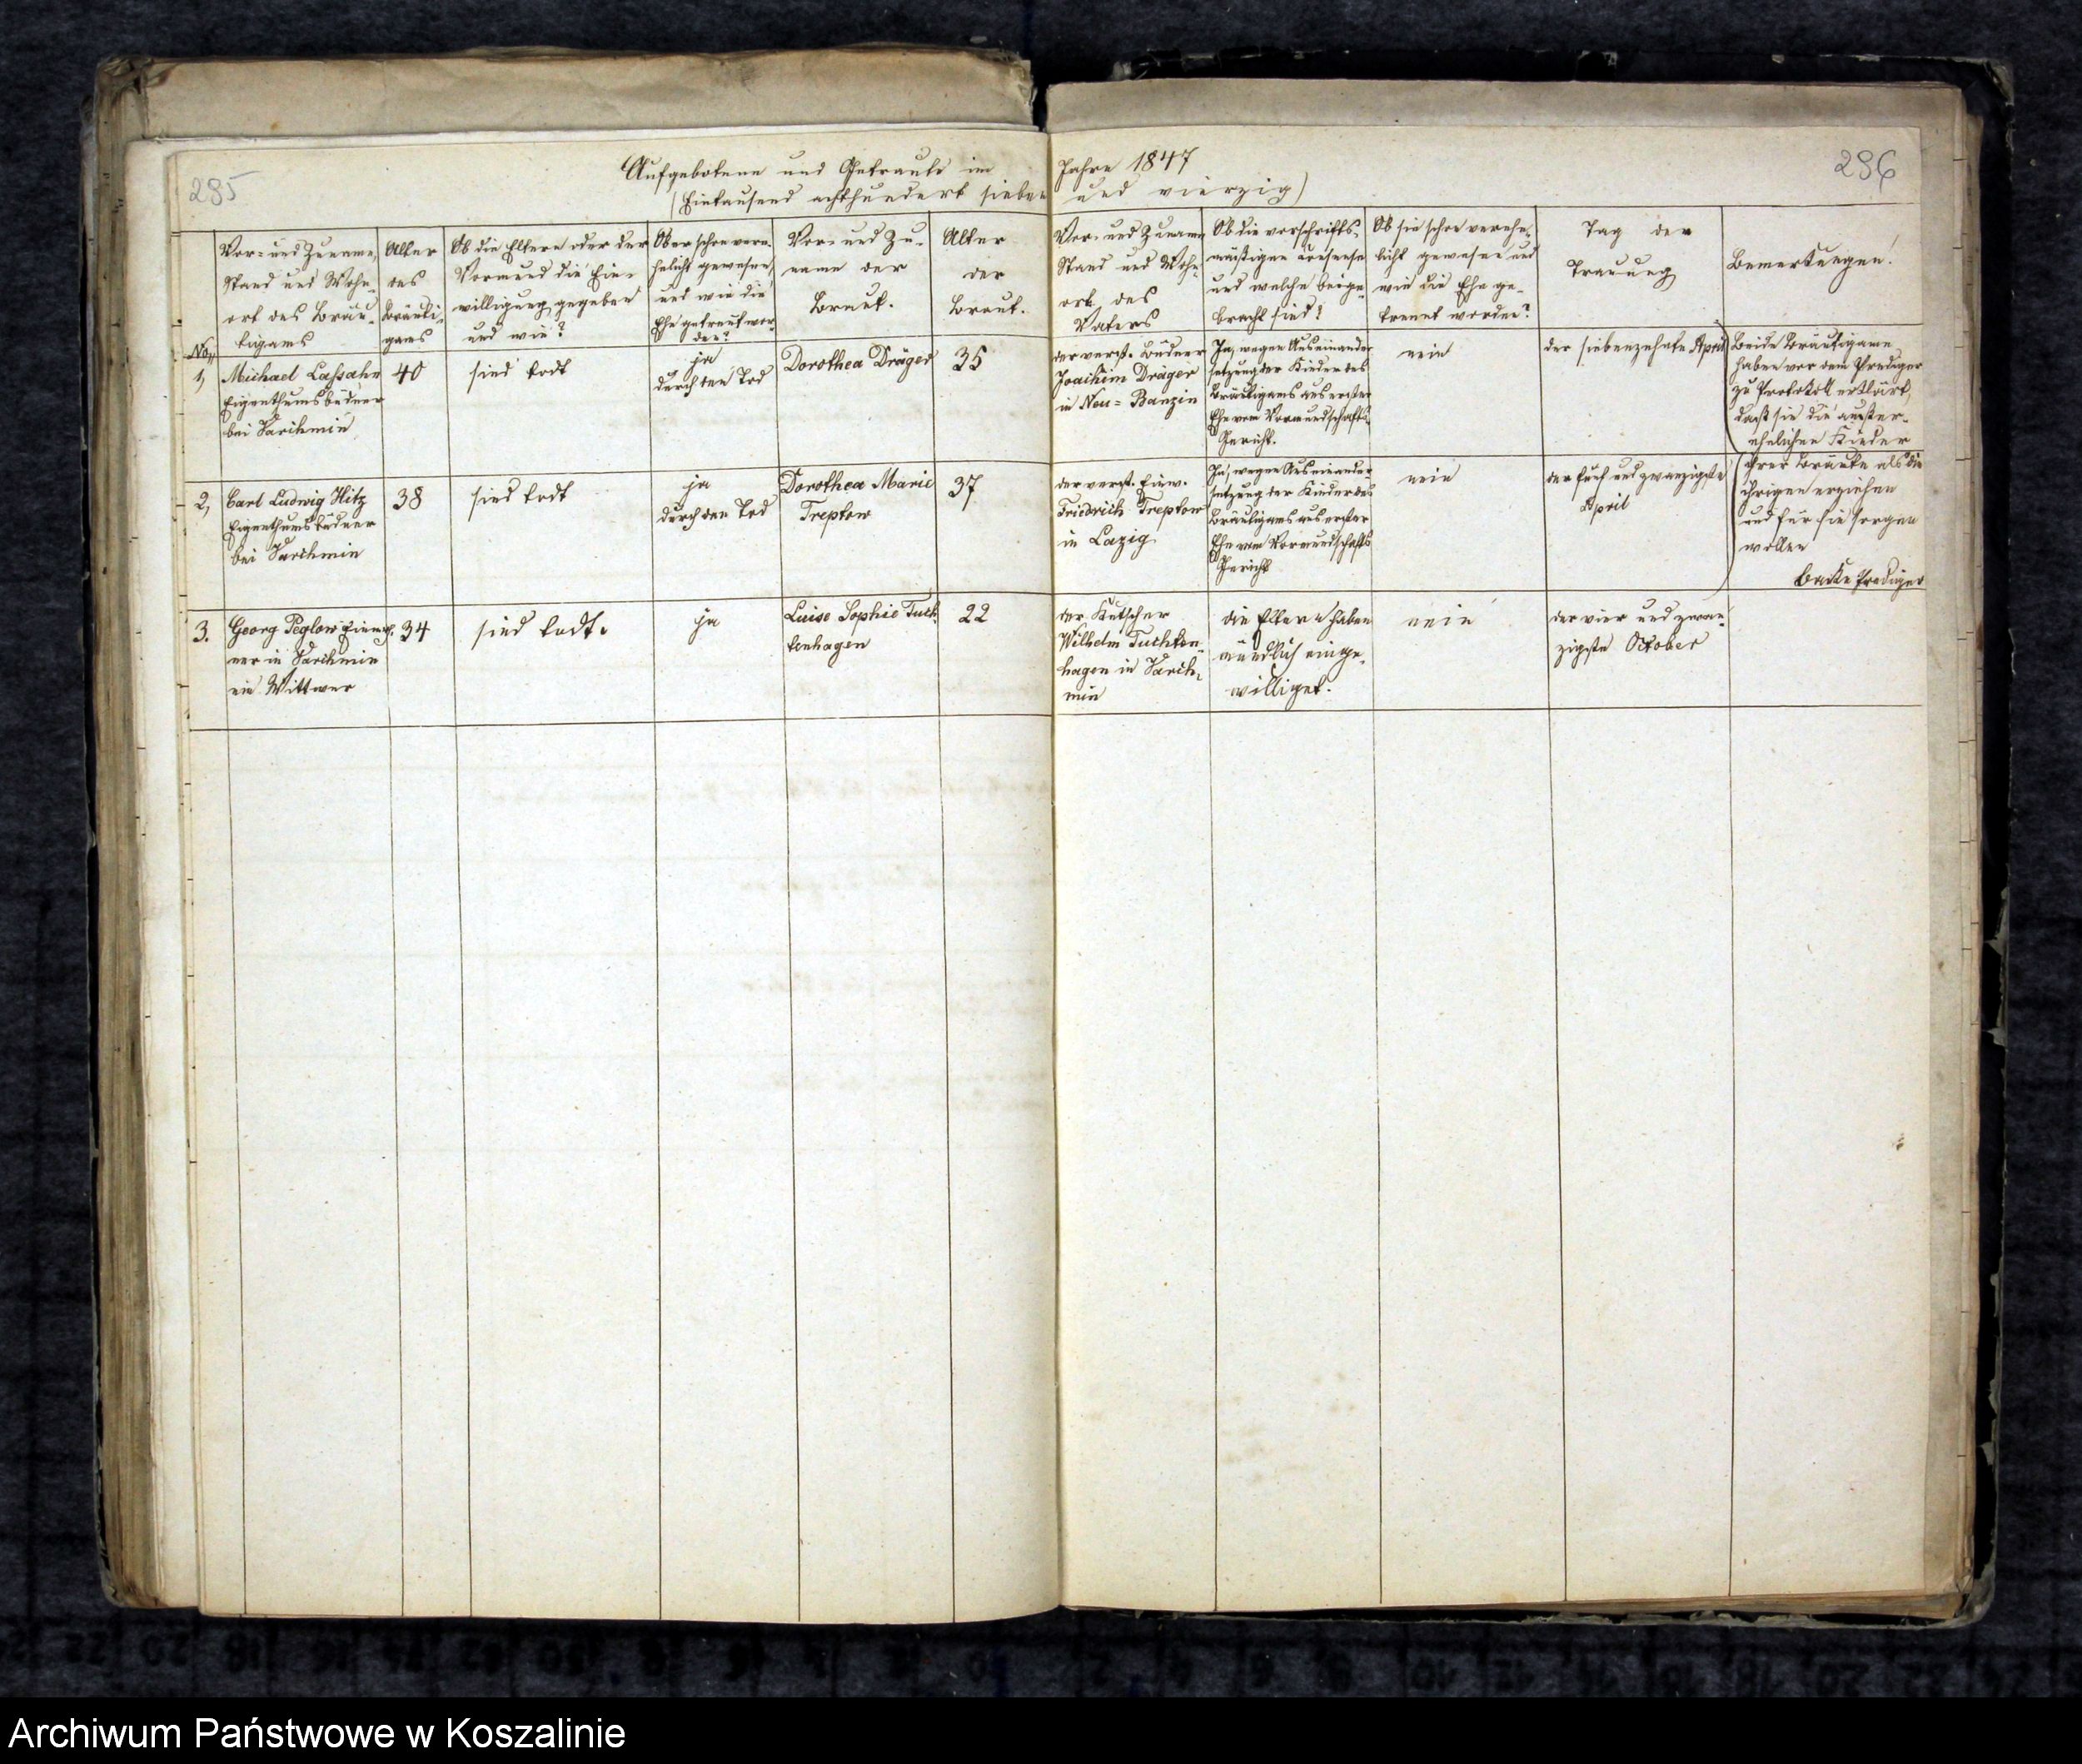 285
Aufgebotene und Getraute im Jahre 1847
(Eintausend achthundert sieben und vierzig)
286
No,
Vor- und Zuname,
Stand und Wohn-
ort des Bräu-
tigams
Alter
des
Bräuti-
gams
Ob die Eltern oder der
Vormund die Ein-
willigung gegeben
und wie?
Ob er schon vere-
helicht gewesen,
und wie die
Ehe getrennt wor-
den?
Vor- und Zu-
name der
Braut.
Alter
der
Braut.
Vor- und Zuname
Stand und Wohn-
ort des
Vaters
Ob die vorschrifts-
mäßigen Consense
und welche beige-
bracht sind?
Ob sie schon verehe-
licht gewesen und
wie die Ehe ge-
trennt worden?
Tag der
Trauung
Bemerkungen!
1,
Michael Lassahn
Eigenthumsbüdner
bei Varchmin
40
sind todt
ja
durch den Tod
Dorothea Dräger
35
der verst. Büdner
Joachim Dräger
in Neu-Banzin
Ja, wegen Auseinander
setzung der Kinder des
Bräutigams aus erster
Ehe vom Vormundschafts-
Gericht.
nein
den siebenzehnten April
Beide Bräutigame
haben vor dem Prediger
zu Protokoll erklärt,
daß sie die außer-
ehelichen Kinder
2,
Carl Ludwig Hitz
Eigenthumsbüdner
bei Varchmin
38
sind todt
ja
durch den Tod
Dorothea Marie
Treptow
37
der verst. Einw.
Friedrich Treptow
in Lazig
Ja, wegen Auseinander-
setzung der Kinder des
Bräutigams aus erster
Ehe vom Vormundschafts
Gericht
nein
den fünf und zwanzigsten
April
ihrer Bräute als die
ihrigen erziehen
und für sie sorgen
wollen
Backe Prediger
3.
Georg Peglow Einwoh-
ner in Varchmin
ein Wittwer
34
sind todt.
ja
Luise Sophie Tuch-
tenhagen
22
der Kutscher
Wilhelm Tuchten-
hagen in Varch-
min
die Eltern haben
mündlich einge-
williget.
nein
den vier und zwan-
zigsten October
Archiwum Państwowe w Koszalinie